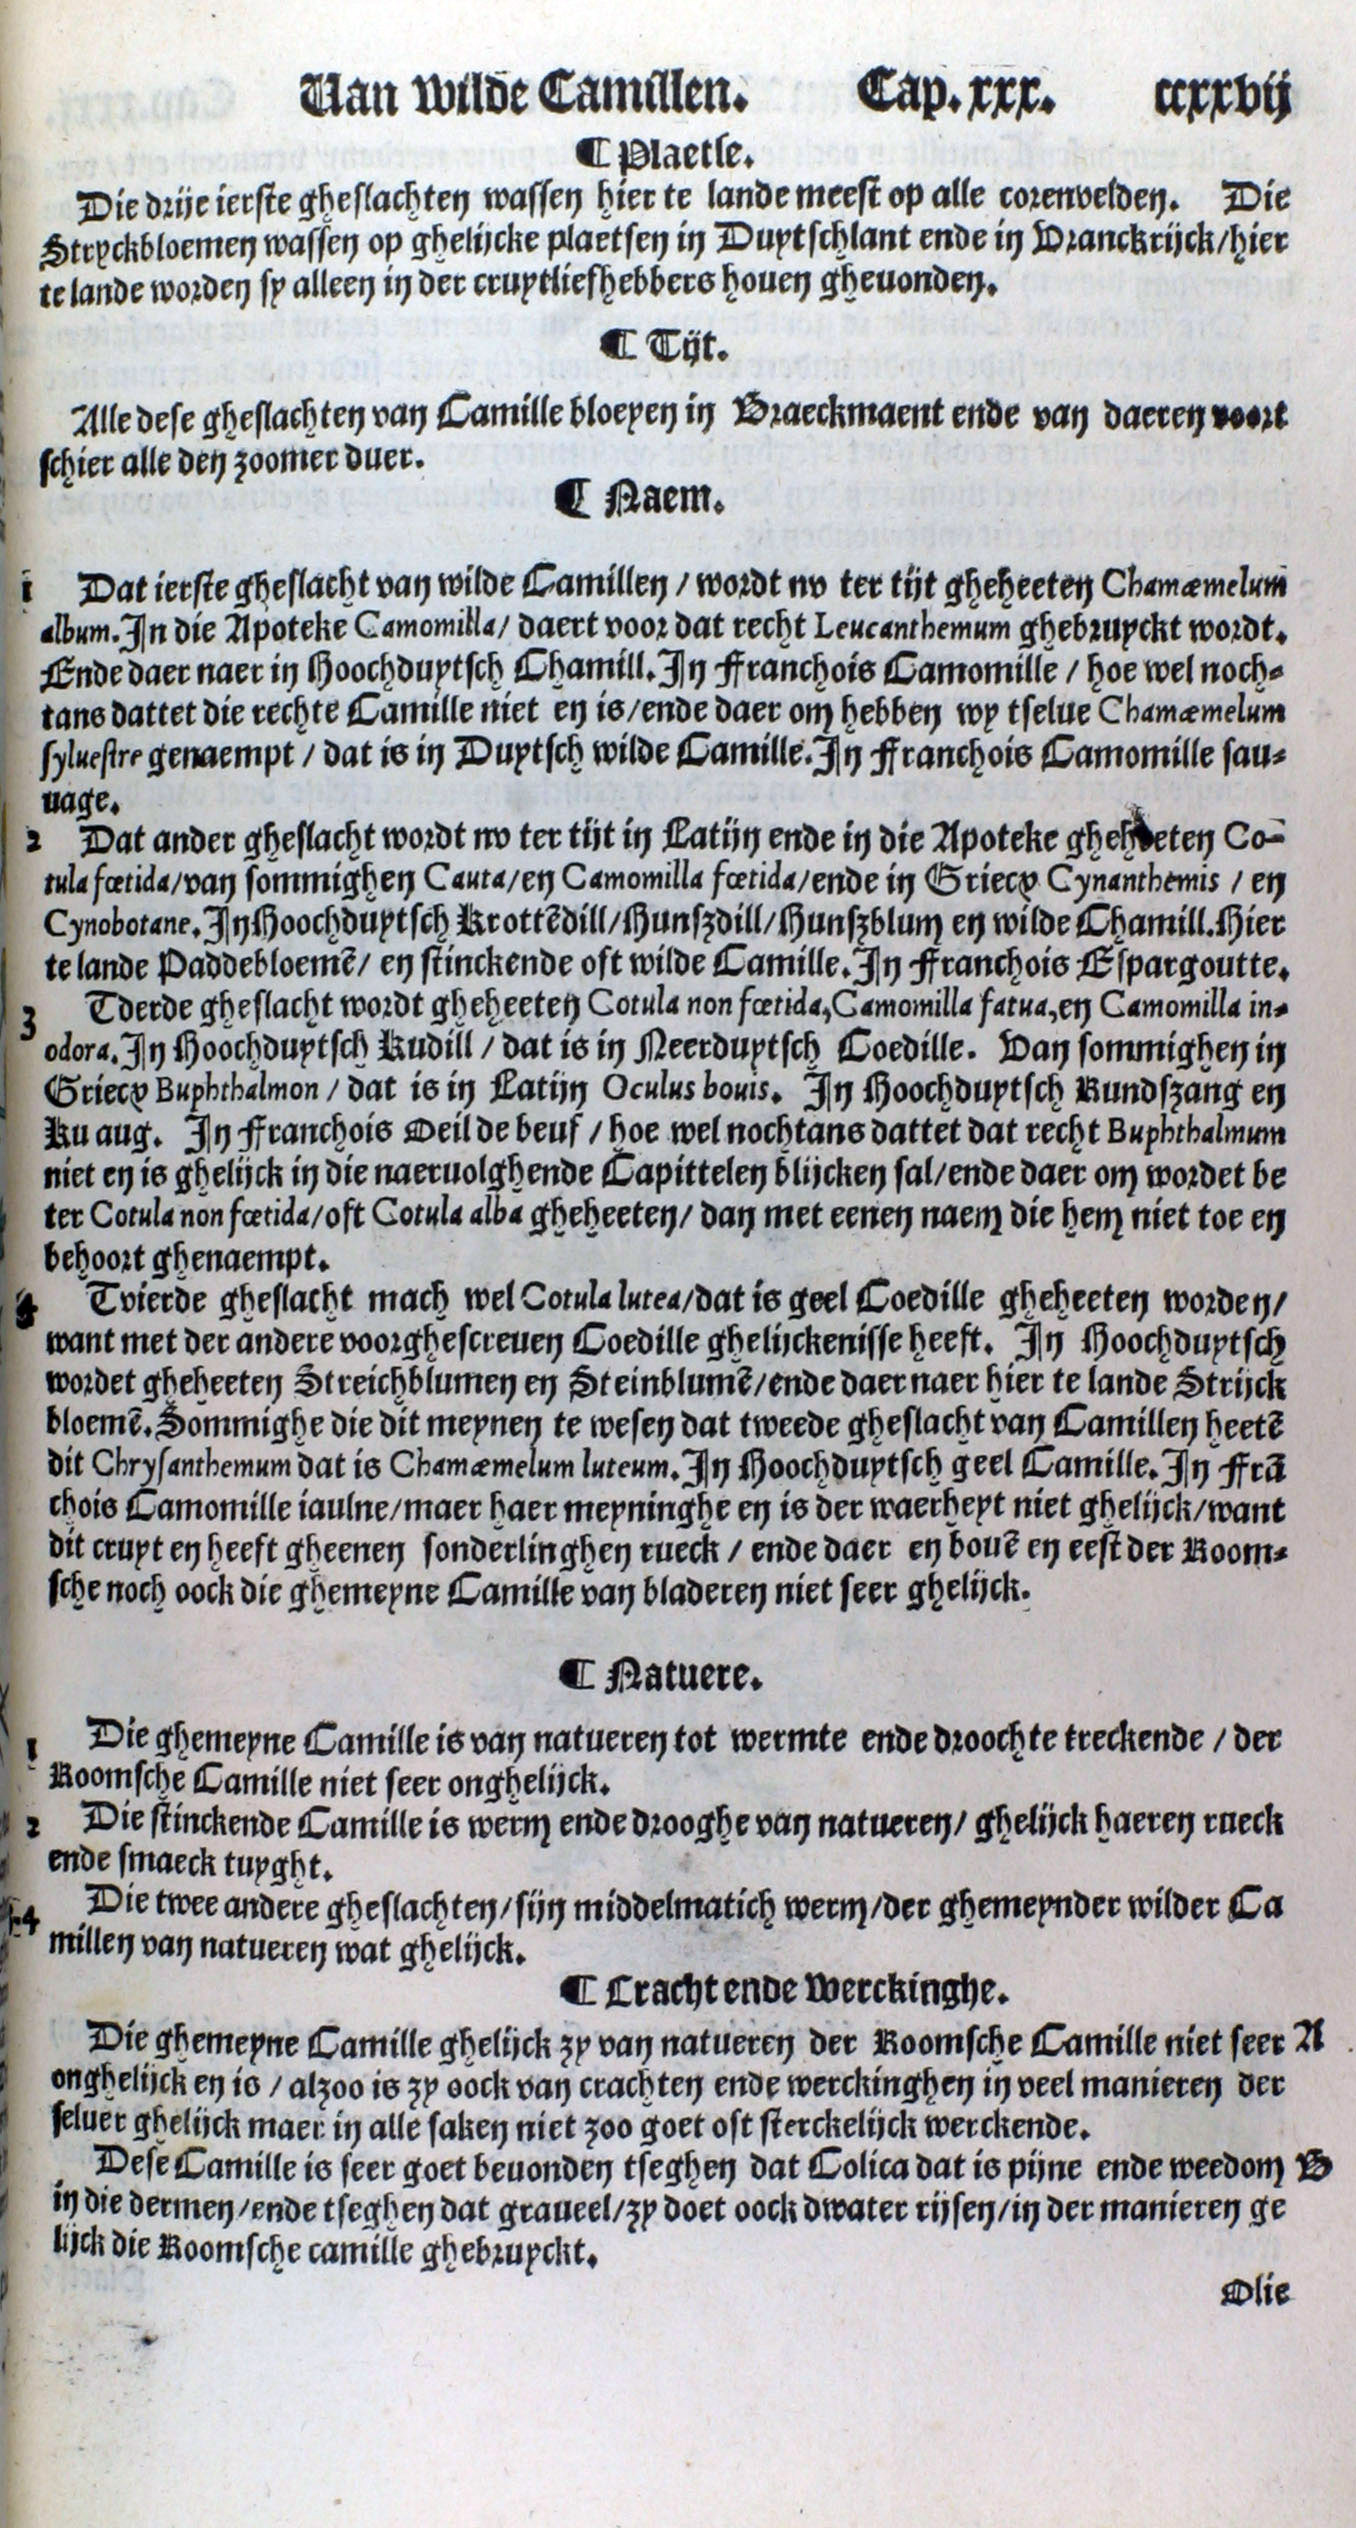 Van wilde Camillen. Cap. xxx. ccxxvij
¶ Plaetse.
Die drije ierste gheslachten wassen hier te lande meest op alle corenvelden. Die
Stryckbloemen wassen op ghelijcke plaetsen in Duytschlant ende in Vranckrijck/hier
te lande worden sy alleen in der cruytliefhebbers houen gheuonden.
¶ Tijt.
Alle dese gheslachten van Camille bloeyen in Braeckmaent ende van daeren voort
schier alle den zoomer duer.
¶ Naem.
1 Dat ierste gheslacht van wilde Camillen / wordt nv ter tijt gheheeten Chamæmelum
album. In die Apoteke Camomilla/ daert voor dat recht Leucanthemum ghebruyckt wordt.
Ende daer naer in Hoochduytsch Chamill. In Franchois Camomille / hoe wel noch-
tans dattet die rechte Camille niet en is/ende daer om hebben wy tselue Chamæmelum
syluestre genaempt / dat is in Duytsch wilde Camille. In Franchois Camomille sau-
uage.
2 Dat ander gheslacht wordt nv ter tijt in Latijn ende in die Apoteke gheheeten Co-
tula fœtida/van sommighen Cauta/en Camomilla fœtida/ende in Griecx Cynanthemis / en
Cynobotane. In Hoochduytsch Krottēdill/Hunszdill/Hunszblum en wilde Chamill. Hier
te lande Paddebloemē/ en stinckende oft wilde Camille. In Franchois Espargoutte.
3 Tderde gheslacht wordt gheheeten Cotula non fœtida, Camomilla fatua, en Camomilla in-
odora. In Hoochduytsch Kudill / dat is in Neerduytsch Coedille. Van sommighen in
Griecx Buphthalmon / dat is in Latijn Oculus bouis. In Hoochduytsch Rundszang en
Ku aug. In Franchois Oeil de beuf / hoe wel nochtans dattet dat recht Buphthalmum
niet en is ghelijck in die naeruolghende Capittelen blijcken sal/ende daer om wordet be
ter Cotula non fœtida/oft Cotula alba gheheeten/ dan met eenen naem die hem niet toe en
behoort ghenaempt.
4 Tvierde gheslacht mach wel Cotula lutea/dat is geel Coedille gheheeten worden/
want met der andere voorghescreuen Coedille ghelijckenisse heeft. In Hoochduytsch
wordet gheheeten Streichblumen en Steinblumē/ende daer naer hier te lande Strijck
bloemē. Sommighe die dit meynen te wesen dat tweede gheslacht van Camillen heetē
dit Chrysanthemum dat is Chamæmelum luteum. In Hoochduytsch geel Camille. In Frā
chois Camomille iaulne/maer haer meyninghe en is der waerheyt niet ghelijck/want
dit cruyt en heeft gheenen sonderlinghen rueck / ende daer en bouē en eest der Room-
sche noch oock die ghemeyne Camille van bladeren niet seer ghelijck.
¶ Natuere.
1 Die ghemeyne Camille is van natueren tot wermte ende droochte treckende / der
Roomsche Camille niet seer onghelijck.
2 Die stinckende Camille is werm ende drooghe van natueren/ ghelijck haeren rueck
ende smaeck tuyght.
4 Die twee andere gheslachten/sijn middelmatich werm/der ghemeynder wilder Ca
millen van natueren wat ghelijck.
¶ Cracht ende Werckinghe.
Die ghemeyne Camille ghelijck zy van natueren der Roomsche Camille niet seer A
onghelijck en is / alzoo is zy oock van crachten ende werckinghen in veel manieren der
seluer ghelijck maer in alle saken niet zoo goet oft sterckelijck werckende.
Dese Camille is seer goet beuonden tseghen dat Colica dat is pijne ende weedom B
in die dermen/ende tseghen dat graueel/zy doet oock dwater rijsen/in der manieren ge
lijck die Roomsche camille ghebruyckt.
Olie